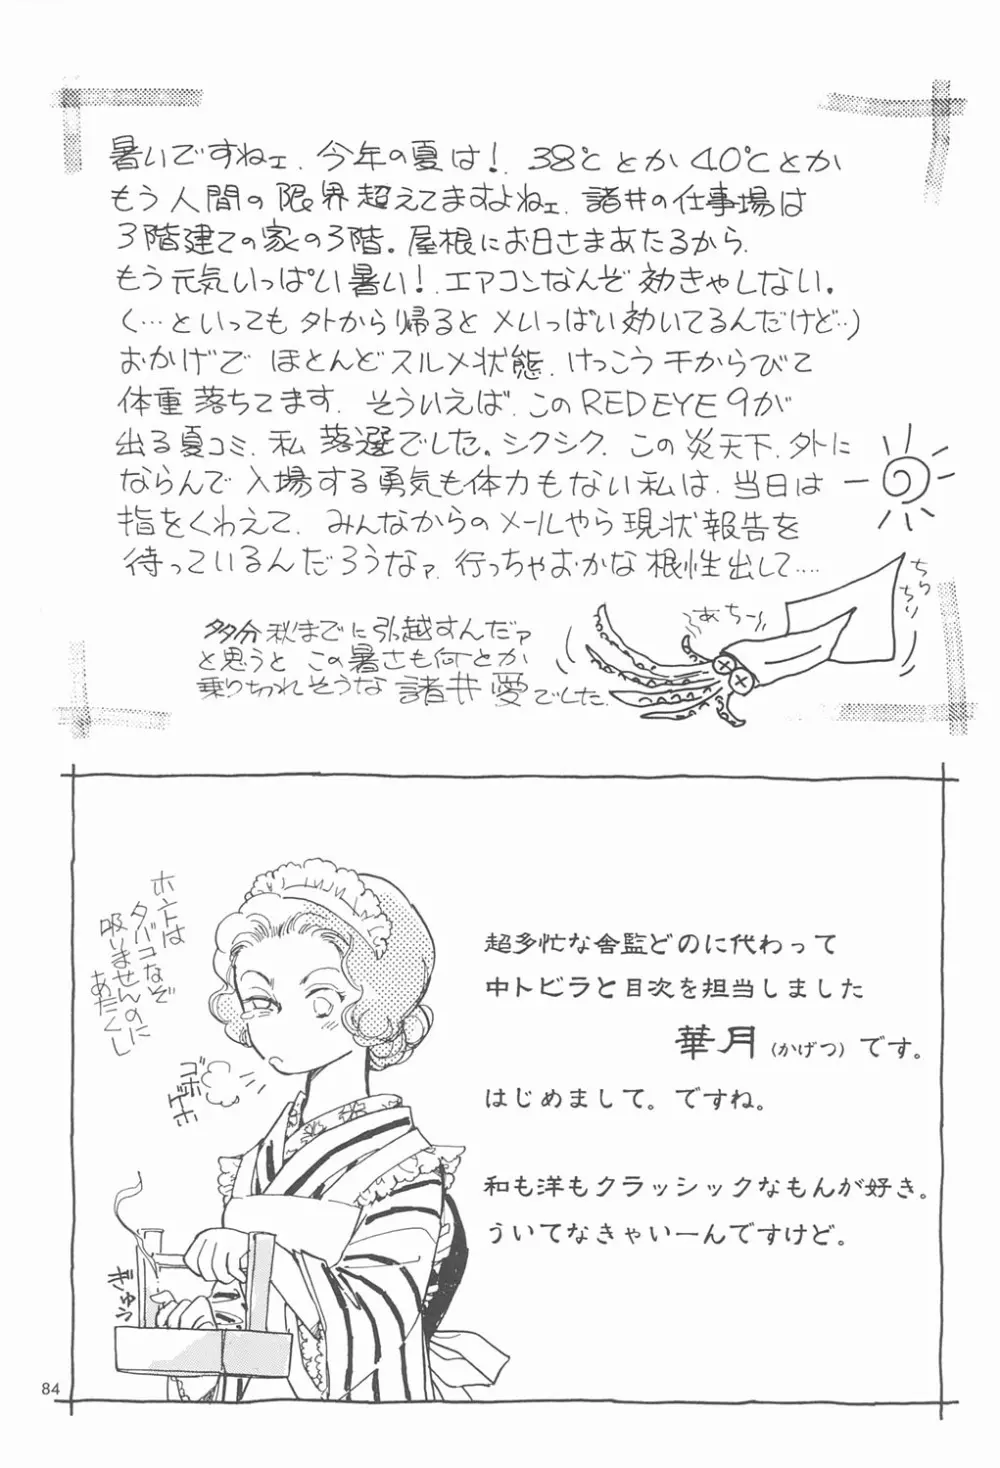 暑いですねェ、今年の夏は! 38℃とか40℃とか
もう人間の限界超えてますよねェ、諸井の仕事場は
3階建ての家の3階。屋根にお日さまあたるから、
もう元気いっぱい暑い! エアコンなんぞ効きゃしない。
(…といっても外から帰るとメいっぱい効いてるんだけど…)
おかげでほとんどスルメ状態、けっこう干からびて
体重落ちてます、そういえば、このREDEYE9が
出る夏コミ、私落選でした。シクシク、この炎天下、外に
ならんで入場する勇気も体力もない私は、当日は
指をくわえて、みんなからのメールやら現状報告を
待っているんだろうなァ、行っちゃおかな根性出して……
ちりちり
あちーぃ
多分秋までに引越すんだァ
と思うとこの暑さも何とか
乗りきれそうな諸井愛でした。
ホントは
タバコなぞ
吸いませんのに
あたくし
ゴホ
ゲホ
ぎゅっ
超多忙な舎監どのに代わって
中トビラと目次を担当しました
華月(かげつ)です。
はじめまして。ですね。
和も洋もクラッシックなもんが好き。
ういてなきゃいーんですけど。
84